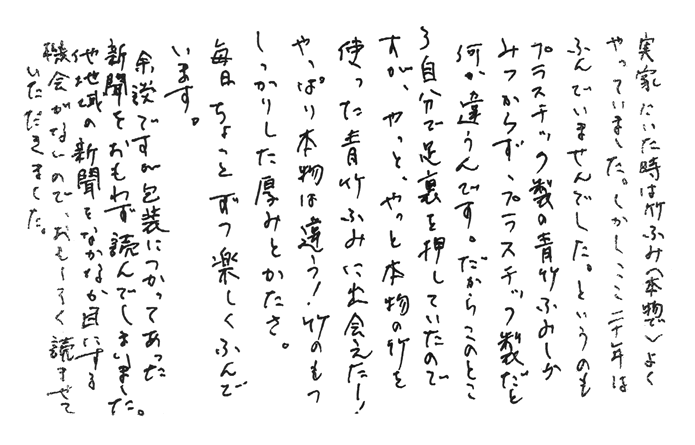 実家にいた時は竹ふみ(本物で)よく
やっていました。しかしここ二十年は
ふんでいませんでした。というのも
プラスチック製の青竹ふみしか
みつからず、プラスチック製だと
何か違うんです。だからこのところ
自分で足裏を押していたので
すが、やっと、やっと本物の竹を
使った青竹ふみに出会えたー!
やっぱり本物は違う!竹のもつ
しっかりした厚みとかたさ。
毎日ちょっとずつ楽しくふんで
います。
余談ですが包装につかってあった
新聞をおもわず読んでしまいました。
他地域の新聞をなかなか目にする
機会がないので、おもしろく読ませて
いただきました。